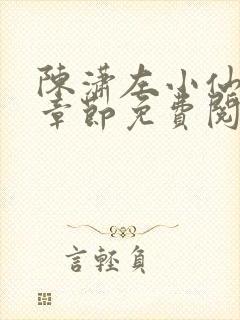 陳瀟左小仙
章節免費閱
言輕負